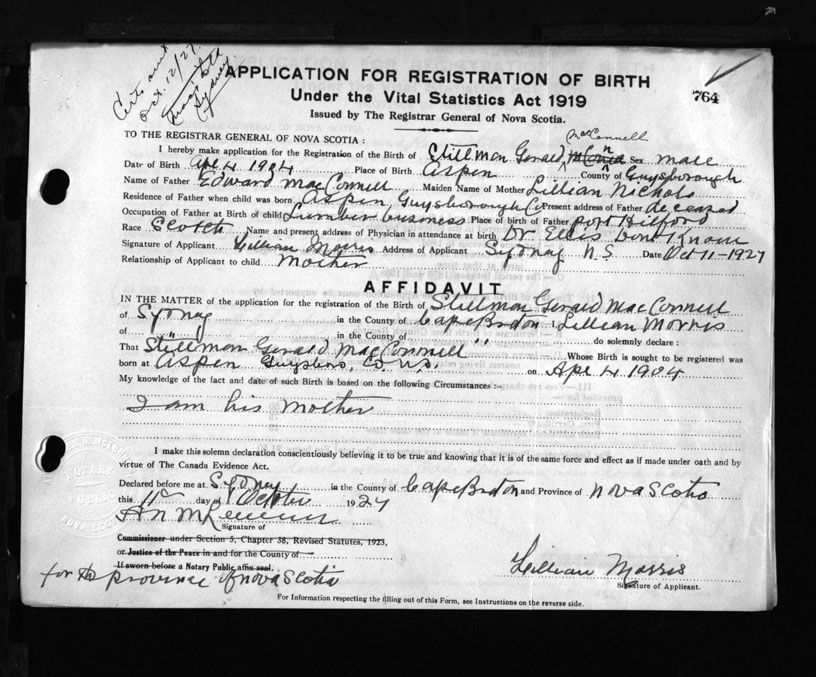 Certs sent
Oct. 12/27
Sydney
APPLICATION FOR REGISTRATION OF BIRTH
Under the Vital Statistics Act 1919
Issued by The Registrar General of Nova Scotia.
764
TO THE REGISTRAR GENERAL OF NOVA SCOTIA :
MacConnell
I hereby make application for the Registration of the Birth of Stillman Gerald Sex male
Date of Birth Apr 4 1904 Place of Birth Aspen County of Guysborough
Name of Father Edward MacConnell Maiden Name of Mother Lillian Nichols
Residence of Father when child was born Aspen Guysborough Co Present address of Father deceased
Occupation of Father at Birth of child Lumber business Place of birth of Father Port Hilford
Race Scotch Name and present address of Physician in attendance at birth Dr Ellis Dont Know
Signature of Applicant Lillian Morris Address of Applicant Sydney N.S. Date Oct 11-1927
Relationship of Applicant to child Mother
AFFIDAVIT
IN THE MATTER of the application for the registration of the Birth of Stillman Gerald MacConnell
of Sydney in the County of Cape Breton I, Lillian Morris
of " in the County of " do solemnly declare :
That Stillman Gerald MacConnell Whose Birth is sought to be registered was
born at Aspen Guysboro, Co N.S. on Apr 4 1904
My knowledge of the fact and date of such Birth is based on the following Circumstances :-
I am his Mother
I make this solemn declaration conscientiously believing it to be true and knowing that it is of the same force and effect as if made under oath and by
virtue of The Canada Evidence Act.
Declared before me at Sydney in the County of Cape Breton and Province of Nova Scotia
this 11th day of October 1927
Signature of
Commissioner under Section 5, Chapter 38, Revised Statutes, 1923,
or Justice of the Peace in and for the County of
If sworn before a Notary Public affix seal.
for the province of Nova Scotia
Lillian Morris
Signature of Applicant.
For Information respecting the filling out of this Form, see Instructions on the reverse side.